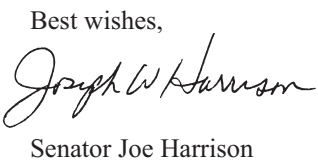 Best wishes,
Joseph W Harrison
Senator Joe Harrison